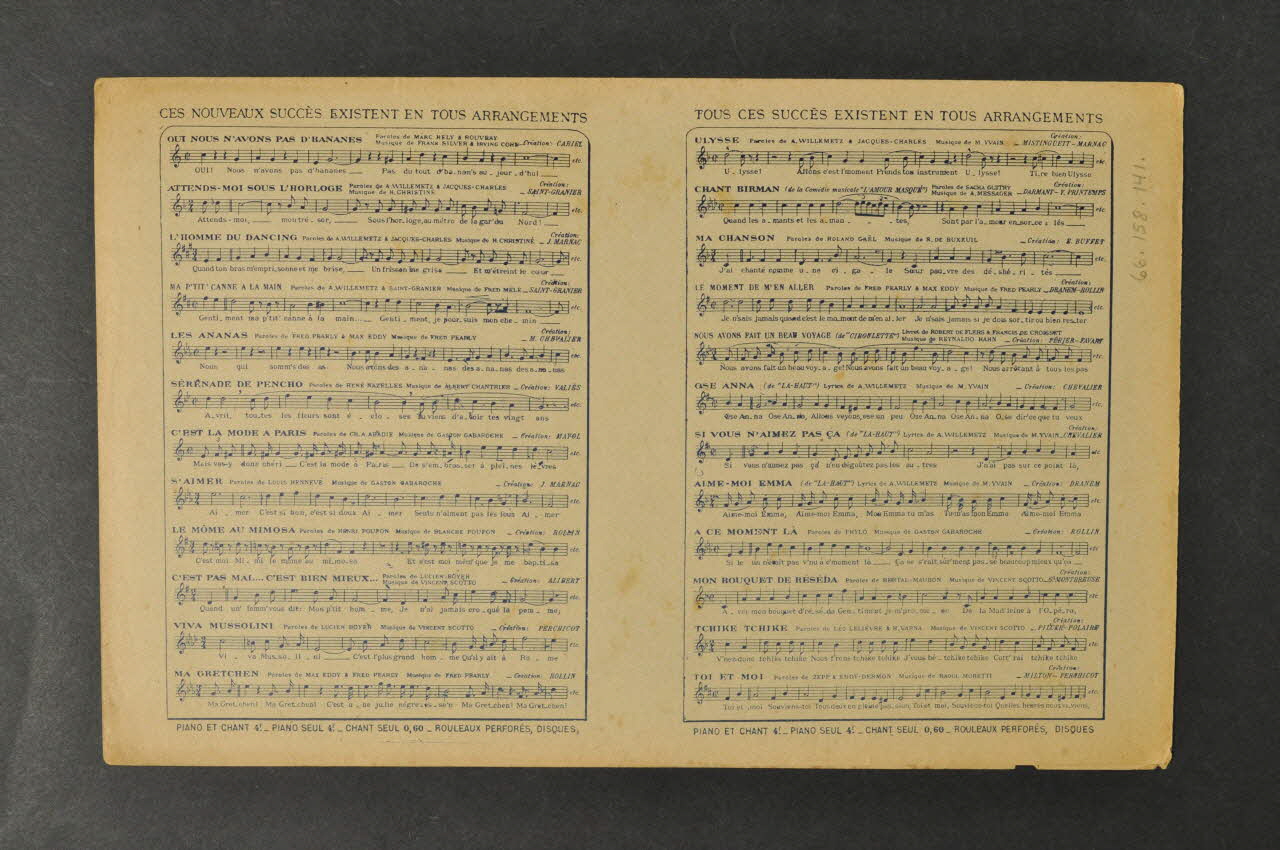 CES NOUVEAUX SUCCÈS EXISTENT EN TOUS ARRANGEMENTS
OUI NOUS N'AVONS PAS D'BANANES Paroles de MARC HELY & ROUVRAY
Musique de FRANK SILVER & IRVING COHN _ Création: CARIEL
OUI! Nous n'avons pas d'bananes ___ Pas du tout d'ba_nan's au_jour_d'hui ___
ATTENDS-MOI SOUS L'HORLOGE Paroles de A. WILLEMETZ & JACQUES-CHARLES Création:
Musique de H. CHRISTINÉ _ SAINT-GRANIER
etc.
Attends-moi, ___ mon tré_sor, ___ Sous l'hor_loge, au métro de la gar' du Nord! ___
Création:
L'HOMME DU DANCING Paroles de A. WILLEMETZ & JACQUES-CHARLES Musique de H. CHRISTINÉ _ J. MARNAC
etc.
Quand ton bras m'empri_sonne et me brise, ___ Un frisson me grise ___ Et m'étreint le cœur ___
Création:
MA P'TIT' CANNE A LA MAIN Paroles de A. WILLEMETZ & SAINT-GRANIER Musique de FRED MELE _ SAINT-GRANIER
etc.
Genti_ment ma p'tit' canne à la main... ___ Genti_ment, je pour_suis mon che_min ___
Création:
LES ANANAS Paroles de FRED PEARLY & MAX EDDY Musique de FRED PEARLY _ M. CHEVALIER
etc.
Nous qui somm's des as Nous avons des a_na_nas des a_na_nas des a_na_nas
SÉRÉNADE DE PENCHO Paroles de RENÉ NAZELLES Musique de ALBERT CHANTRIER _ Création: VALIÈS
etc.
A_vril, tou_tes les fleurs sont é_clo_ses Tu viens d'a_voir tes vingt ans
C'EST LA MODE A PARIS Musique de GASTON GABAROCHE _ Création: MAYOL
etc.
Mais vas-y donc chéri ___ C'est la mode à Pa_ris ___ De s'em_bras_ser à plei_nes lè_vres
S'AIMER Paroles de LOUIS HENNEVÉ Musique de GASTON GABAROCHE _ Création: J. MARNAC
etc.
Ai_mer C'est si bon, c'est si doux Ai_mer Seuls n'aiment pas les fous Ai_mer
LE MÔME AU MIMOSA Paroles de HENRI POUPON Musique de BLANCHE POUPON _ Création: ROLLIN
etc.
C'est moi Mi_mi le môme au mi_mo_sa Et c'est moi mêm' que je me bap_ti_sa
C'EST PAS MAL... C'EST BIEN MIEUX... Paroles de LUCIEN BOYER
Musique de VINCENT SCOTTO _ Création: ALIBERT
etc.
Quand un' femm' vous dit: Mon p'tit hom_me, Je n'ai jamais cro_qué la pom_me;
VIVA MUSSOLINI Paroles de LUCIEN BOYER Musique de VINCENT SCOTTO _ Création: PERCHICOT
etc.
Vi_va Mus_so_li_ni ___ C'est l'plus grand hom_me Qu'il y ait à Ro_me
MA GRETCHEN Paroles de MAX EDDY & FRED PEARLY Musique de FRED PEARLY _ Création: ROLLIN
etc.
Ma Gret_chen! Ma Gret_chen! C'est u_ne jolie négres_se'n Ma Gret_chen! Ma Gret_chen!
PIANO ET CHANT 4f _ PIANO SEUL 4f _ CHANT SEUL 0,60 _ ROULEAUX PERFORÉS, DISQUES,
TOUS CES SUCCÈS EXISTENT EN TOUS ARRANGEMENTS
Création:
ULYSSE Paroles de A. WILLEMETZ & JACQUES-CHARLES Musique de M. YVAIN _ MISTINGUETT-MARNAC
etc.
U_lysse! Allons c'est l'moment Prends ton instrument U_lysse! Ti_re bien Ulysse
CHANT BIRMAN (de la Comédie musicale "L'AMOUR MASQUÉ") Paroles de SACHA GUITRY Création:
Musique de A. MESSAGER _ DARMANT-Y. PRINTEMPS
etc.
Quand les a_mants et les a_man_tes, Sont par l'a_mour en_sor_ce_lés
MA CHANSON Paroles de ROLAND GAËL Musique de R. DE BUXEUIL _ Création: E. BUFFET
etc.
J'ai chanté comme u_ne ci_ga_le Sœur pau_vre des dé_shé_ri_tés ___
Création:
LE MOMENT DE M'EN ALLER Paroles de FRED PEARLY & MAX EDDY Musique de FRED PEARLY _ DRANEM-ROLLIN
etc.
Je n'sais jamais quand c'est le mo_ment de m'en al_ler Je n'sais jamais si je dois sor_tir ou bien res_ter
NOUS AVONS FAIT UN BEAU VOYAGE (de "CIBOULETTE") Livret de ROBERT DE FLERS & FRANCIS DE CROISSET
Musique de REYNALDO HAHN _ Création: PÉRIER-FAVART
etc.
Nous avons fait un beau voy_a_ge! Nous avons fait un beau voy_a_ge! Nous arrêtant à tous les pas
OSE ANNA (de "LA-HAUT") Lyrics de A. WILLEMETZ Musique de M. YVAIN _ Création: CHEVALIER
etc.
Ose An_na Ose An_na, Allons voyons, ose un peu Ose An_na Ose An_na O_se dir' ce que tu veux
Création:
SI VOUS N'AIMEZ PAS ÇA (de "LA-HAUT") Lyrics de A. WILLEMETZ Musique de M. YVAIN _ CHEVALIER
etc.
Si vous n'aimez pas ça N'en dégoûtez pas les au_tres J'n'ai pas sur ce point là,
AIME-MOI EMMA (de "LA-HAUT") Lyrics de A. WILLEMETZ Musique de M. YVAIN _ Création: DRANEM
etc.
Aime-moi Emma, Aime-moi Emma, Mon Emma tu m'as Tu m'as ton Emma Aime-moi Emma
A CE MOMENT LÀ Paroles de PHYLO Musique de GASTON GABAROCHE _ Création: ROLLIN
etc.
Si le on n'était pas v'nu à c'moment là ___ Ça ne s'rait sûr'ment pas_sé beaucoup mieux qu'ça ___
Création:
MON BOUQUET DE RÉSÉDA Paroles de BERTAL-MAUBON Musique de VINCENT SCOTTO _ St MONTBREUSE
etc.
A_vec mon bouquet d'ré_sé_da Gen_timent je m'pro_mè_ne De la Mad'leine à l'O_pé_ra,
Création:
TCHIKE TCHIKE Paroles de LÉO LELIÈVRE & H. VARNA Musique de VINCENT SCOTTO _ PILCER-POLAIRE
etc.
V'nez donc tchike tchike Nous f'rons tchike tchike J'vous bé_tchike tchike Cott' rai tchike tchike
Création:
TOI ET MOI Paroles de ZEPE & ENDY-DERMON Musique de RAOUL MORETTI _ MILTON-PERCHICOT
etc.
Toi et moi Souviens-toi Tous deux en pleine pas_sion, Toi et moi, Souviens-toi Quelles heures nous vivions,
PIANO ET CHANT 4f _ PIANO SEUL 4f _ CHANT SEUL 0,60 _ ROULEAUX PERFORÉS, DISQUES
66.158.141.